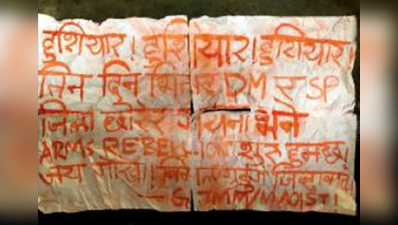 हुशियार! हुशियार! हुशियार!
तिन दिन भित्र DM र SP
जिल्ला छोरेर गयेना भने
ARMS REBELLION शुरु हुनछ।
जय गोरखा!
— G JMM/MAOIST!